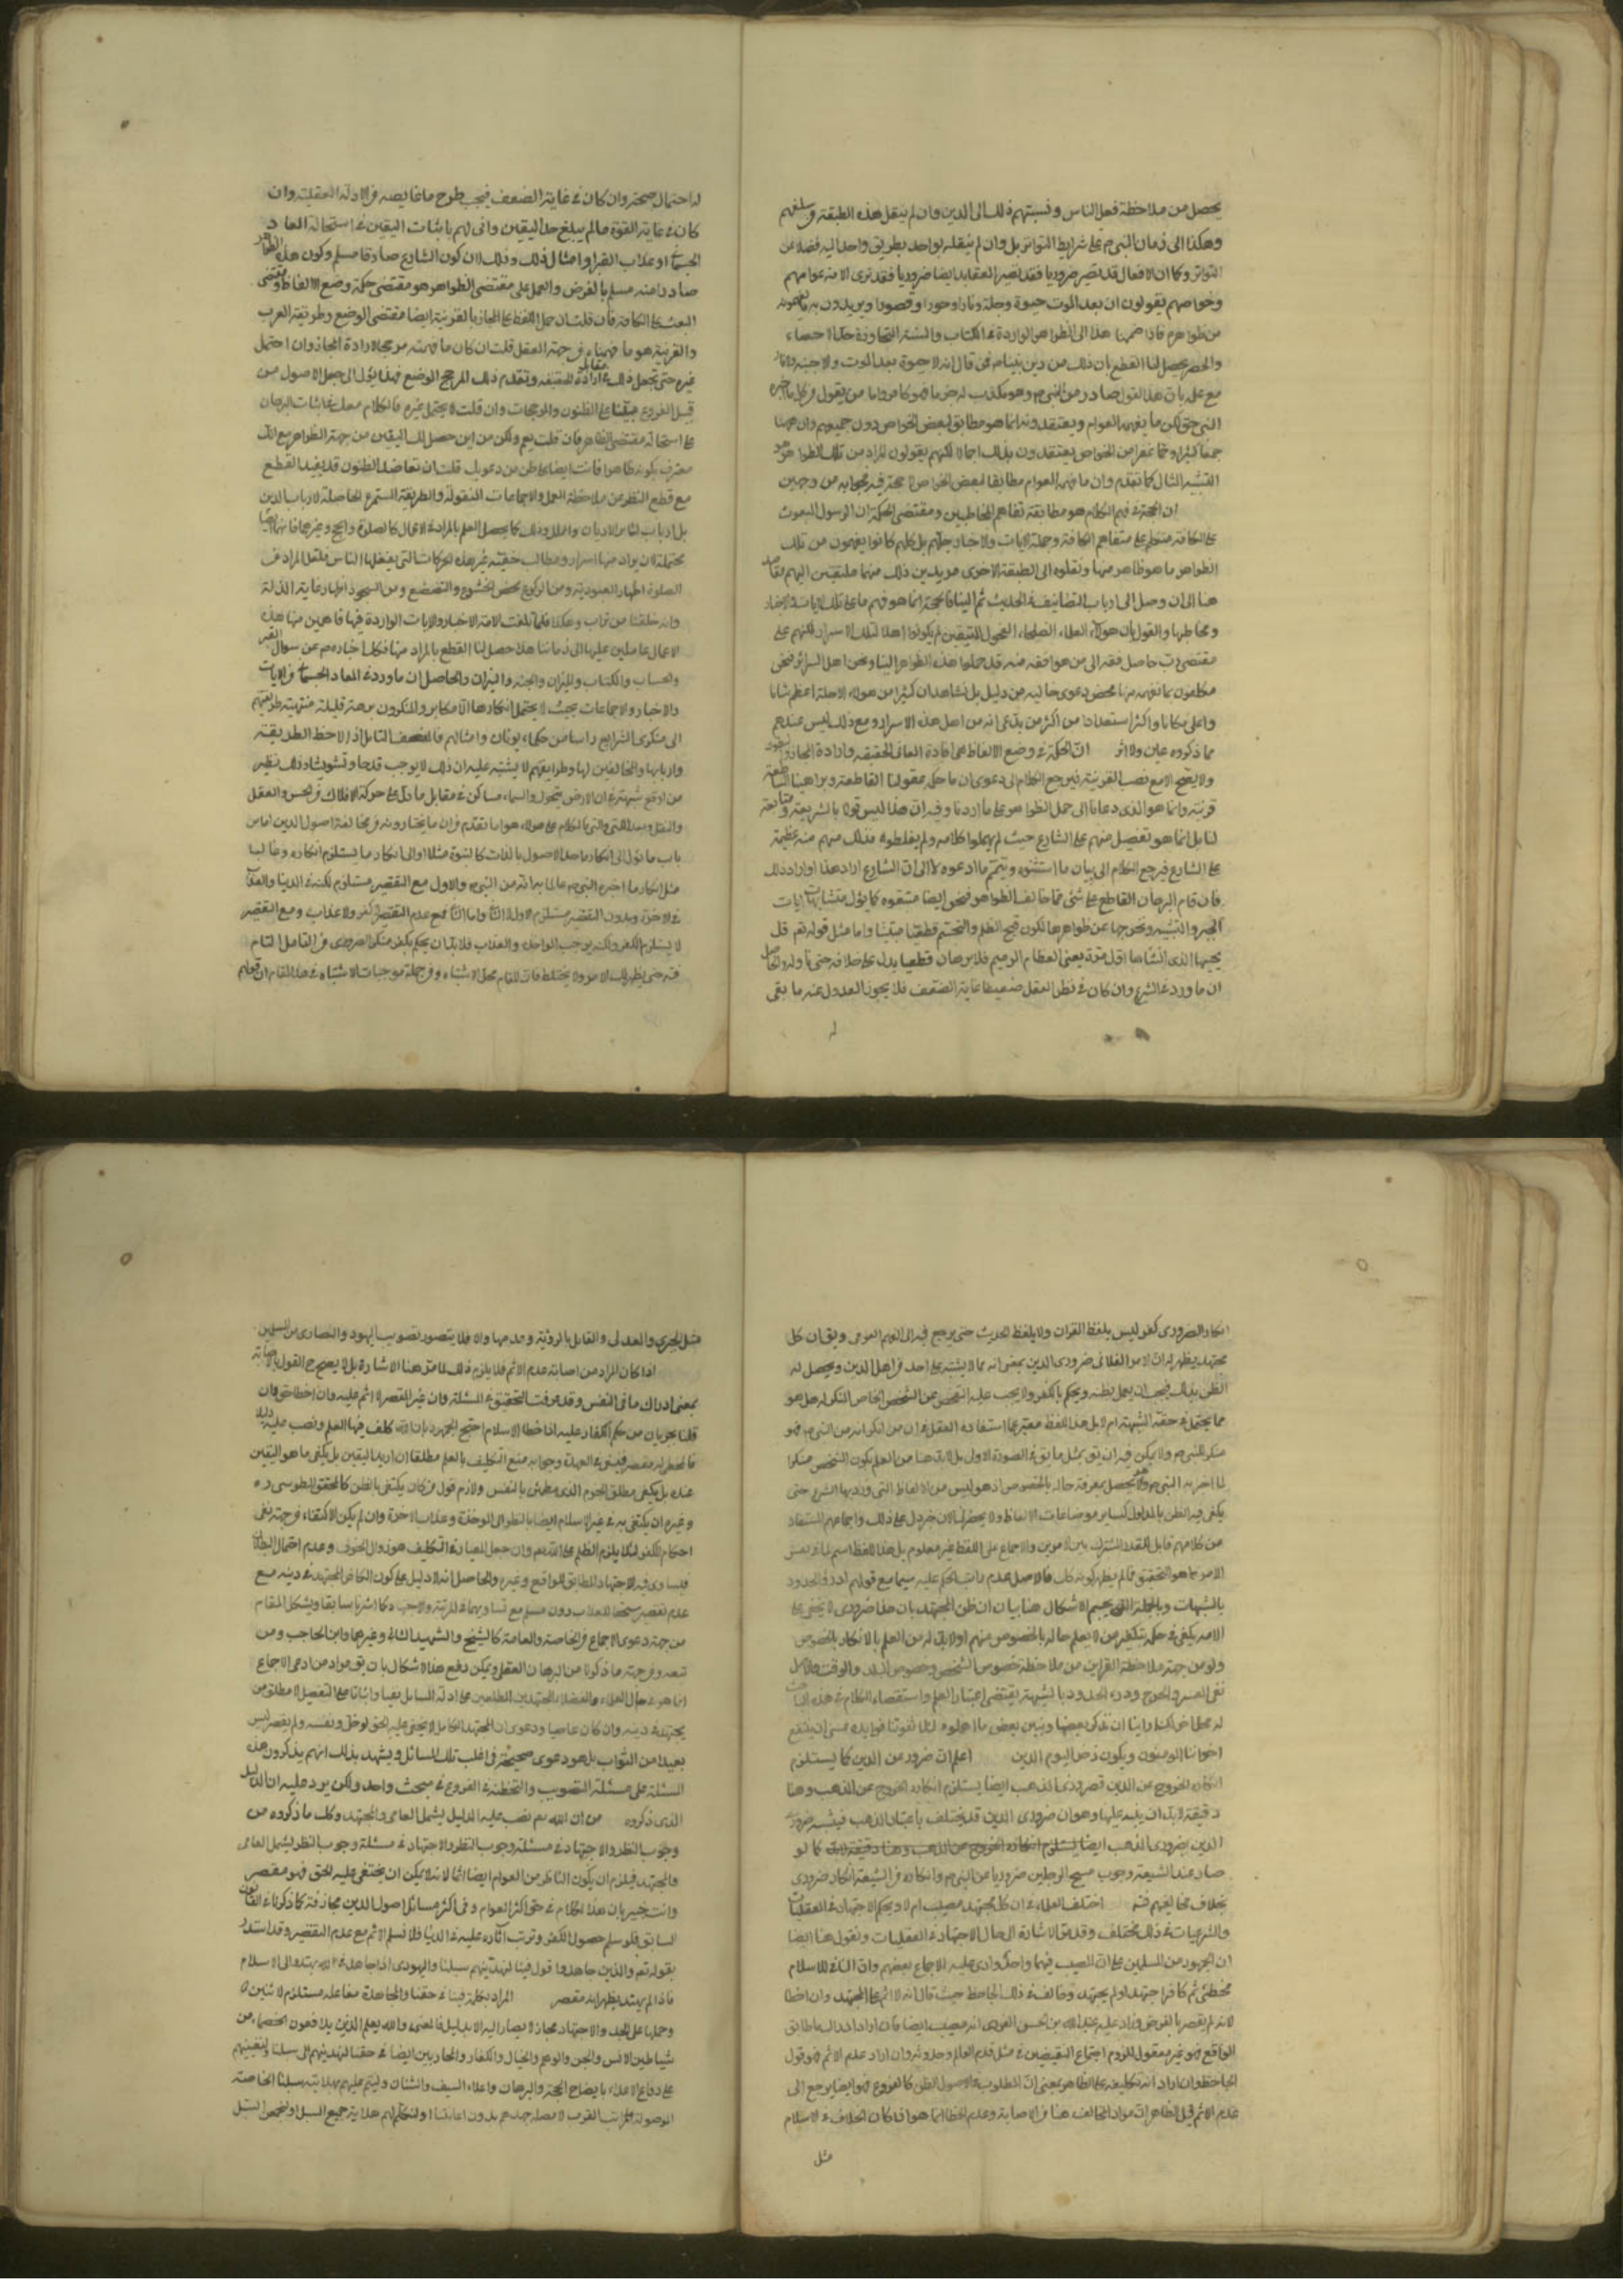 يحصل من ملاحظة فعل الناس ونسبتهم ذلك الى الدين وان لم ينقل هذه الطبقة وسلفهم
وهكذا الى زمان النبي ص على شرايط التواتر بل وان لم ينقله بواحد بطريق واحد اليه فضلا عن
التواتر وكما ان الافعال قد تصير ضروريا فقد تصير العقايد ايضا ضروريا فقد نرى الامة عوامهم
وخواصهم يقولون ان بعد الموت حيوة وجنة ونارا وحورا وقصورا ويريدون به ما يفهمونه
من ظواهره فاذا ضممنا هذا الى الظواهر الواردة في الكتاب والسنة المتجاوزة حد الاحصاء
والحصر يحصل لنا القطع بان ذلك من دين نبينا ص فمن قال انه لا حيوة بعد الموت ولا جنة ولا نار
مع علمه بان هذا القول صادر من النبي ص وهو مكذب له ص ما فهو كافر واما من يقول ان كل ما اخبره
النبي حق لكن ما يفهمه العوام ويعتقدونه انما هو مطابق لبعض الخواص دون جميعهم وان ههنا
جمعا كثيرا وجما غفيرا من الخواص يعتقدون بذلك اجمالا لكنهم يقولون المراد من تلك الظواهر هو
التشبيه المثال كما تقدم وان ما فهمه العوام مطابقا لبعض الخواص لا حجة فيه فجوابه من وجهين
ان الحجة في فهم الكلام هو مطابقة تفاهم المخاطبين ومقتضى الحكمة ان الرسول المبعوث
على الكافة متكلم على متفاهم الكافة وجملة الايات والاخبار جلهم بل كلهم كانوا يفهمون من تلك
الظواهر ما هو ظاهر منها ونقلوه الى الطبقة الاخرى مريدين ذلك منها ملتقين اليهم مقاصد
هذا الى ان وصل الى ارباب التصانيف في الحديث ثم الينا فالحجة انما هو فهم ما على تلك الايات والاخبار
ومخاطبها والقول بان هؤلاء العلماء الصلحاء الفحول المتيقين لم يكونوا اهلا لتلك الاسرار لكنهم على
مقتضى رب حامل فقه الى من هو افقه منه قد حملوا هذه الظواهر الينا ونحن اهل السرائر فنحن
مكلفون بما نفهمه منها محض دعوى خالية من دليل بل نشاهد ان كثيرا من هؤلاء الاجلة اعظم شانا
واعلى مكانا واكثر استعدادا من اكثر من يدعى انه من اهل هذه الاسرار ومع ذلك ليس عندهم
مما ذكروه عين ولا اثر ان الحكمة في وضع الالفاظ هي افادة المعاني الحقيقة وارادة المجاز
ولا يصح الا مع نصب القرينة فيرجع الكلام الى دعوى ان ما حكم عقولنا القاطعة وبراهيننا الساطعة
قرينة وانما هو الذى دعانا الى حمل الظواهر على ما اردنا وفيه ان هذا ليس قولا بالشريعة ومتابعة
لنا بل انما هو تفضيل منهم على الشارع حيث لم يهملوا كلامه ولم يغلطوه فذلك منهم منة عظيمة
على الشارع فيرجع الكلام الى بيان ما استثنوه ويتمم ما ادعوه لا الى ان الشارع اراد هذا او اراد ذلك
فان قام البرهان القاطع على شئ مما خالف الظواهر فنحن ايضا متبعوه كما يؤل متشابهات ايات
الجبر والتشبيه ونخرجها عن ظواهرها لكون قبح الظلم والتجسم قطعيا مبينا واما مثل قوله تعم قل
يحييها الذى انشاها اول مرة يعنى العظام الرميم فلا برهان قطعيا يدل على خلافه حتى ناوله والحاصل
ان ما ورد في الشرع وان كان في نظر العقل ضعيفا غاية الضعف فلا يجوز العدول عنه ما بقى
له
له احتمال صحته وان كان في غاية الضعف فيجب طرح ما يعارضه من الادلة العقلية وان
كان في غاية القوة ما لم يبلغ حد اليقين وانى لهم باثبات اليقين في استحالة المعاد
الجسماني او عذاب القبر او امثال ذلك وذلك لان كون الشارع صادقا مسلم وكون هذه الظواهر
صادرا منه مسلم بالفرض والعمل على مقتضى الظواهر هو مقتضى حكمة وضع الالفاظ ومقتضى
البعث على الكافة فان قلت ان حمل اللفظ على المجاز بالقرينة ايضا مقتضى الوضع وطريقة العرب
والقرينة هو ما فهمناه من جهة العقل قلت ان كان ما فهمته مرجحا لارادة المجاز وان احتمل
غيره حتى تجعل ذلك في مقابل ارادة الحقيقة وتقدم ذلك المرجح الوضع فهذا يؤل الى جعل الاصول من
قبيل الفروع مبتنيا على الظنون والمرجحات وان قلت لا يحتمل غيره فالكلام معك في اثبات البرهان
على استحالة مقتضى الظاهر فان قلت نعم ولكن من اين حصل لك اليقين من جهة الظواهر مع انك
معترف بكونه ظاهرا فانت ايضا على ظن من دعويك قلت ان تعاضد الظنون قد يفيد القطع
مع قطع النظر من ملاحظة العمل والاجماعات المنقولة والطريقة المستمرة الحاصلة لارباب الدين
بل ارباب سائر الاديان والملل وذلك كما يحصل العلم بالمراد في الاعمال كالصلوة والحج وغيرهما فانها ايضا
محتملة لان يراد منها اسرار ومطالب خفية غير هذه الحركات التى يفعلها الناس فلعل المراد من
الصلوة اظهار العبودية ومن الركوع محض الخشوع والتخضع ومن السجود اظهار غاية الذلة
وانه خلقنا من تراب وهكذا فكما بلغت الامة الاخبار والايات الواردة فيها فاهمين منها هذه
الاعمال عاملين عليها الى زماننا هذا حصل لنا القطع بالمراد منها فكذا اخباره ص عن سوال القبر
والحساب والكتاب والميزان والجنة والنيران والحاصل ان ما ورد في المعاد الجسماني من الايات
والاخبار والاجماعات بحيث لا يحتمل انكارها الا مكابر والمنكرون برهة قليلة منتهية طريقتهم
الى منكرى الشرايع راسا من حكماء يونان وامثالهم فالمنصف المتامل اذا لاحظ الطريقة
واربابها والمخالفين لها وطرايقهم لا يشتبه عليه ان ذلك لا يوجب قدحا وتشويشا وذلك نظير
من اوقع شبهة في ان الارض متحرك والسماء ساكن في مقابل ما دل على حركة الافلاك من الحس والعقل
والنقل وبعد اللتى والتى فالكلام على هؤلاء هو اما تقدم من ان ما يختارونه من مخالفة اصول الدين اما من
باب ما يؤل الى انكار ما عد الاصول بالذات كالنبوة مثلا او الى انكار ما يستلزم انكاره وغالبا
مثل انكار ما اخبره النبي ص عالما به انه من النبي ص والاول مع التقصير مستلزم لكفره في الدنيا والعذاب
في الاخرة وبدون التقصير مستلزم الاول لا الثانى واما الثانى فمع عدم التقصير لا كفر ولا عذاب ومع التقصير
لا يستلزم الكفر ولكنه يوجب المواخذة والعذاب فلا بد ان يحكم بكفر منكر الضرورى من التامل التام
فيه حتى يظهر لك الامر ولا يختلط فان المقام محل الاشتباه ومن جملة موجبات الاشتباه في هذا المقام ان قولهم
انكار الضرورى كفر ليس بلفظ القران ولا بلفظ الحديث حتى يرجع فيه الى الفهم العرفى ويق ان كل
مجتهد يظهر له ان الامر الفلانى ضرورى الدين بمعنى انه مما لا يشتبه على احد من اهل الدين ويحصل له
الظن بذلك فيجب ان يعمل بظنه ويحكم بالكفر ولا يجب عليه التفحص من الشخص الخاص المنكر له هل هو
مما يحتمل في حقه الشبهة ام لا بل هذا اللفظ معبر عما استفاده العقل من ان من انكر انه من النبي ص فهو
منكر للنبي ص ولا يمكن فيه ان يق بمثل ما يق في الصورة الاولى بل لابد هنا من العلم بكون الشخص منكرا
لما اخر به النبي ص وهو يحصل بمعرفة حاله بالخصوص اذ هو ليس من الالفاظ التى ورد بها الشرع حتى
يكفى فيه الظن بالمدلول كساير موضاعات الالفاظ ولا يحضرنى الان خبر دل على ذلك واجماعهم المستفاد
من كلامهم قابل للقدر المشترك بين الامرين والاجماع على اللفظ غير معلوم بل هذا اللفظ اسم لما في نفس
الامر مما هو المتحقق فما لم يظهر كونه كك فالاصل عدم ترتب الحكم عليه سيما مع قولهم ادرؤا الحدود
بالشبهات وبالجملة الذى يحسم الاشكال هنا بيان ان ظن المجتهد بان هذا ضرورى لا يخفى على
الامة يكفى في حكمه بتكفير من لا يعلم حاله بالخصوص منهم او لابد له من العلم بالانكار بالخصوص
ولو من جهة ملاحظة القراين من ملاحظة خصوص الشخص وخصوص البلد والوقت
نفى العسر والحرج ودرء الحدود بالشبهة يقتضى اعتبار العلم واستقصاء الكلام في هذه المباحث
له محل اخر لكنا راينا ان نذكر بعضها ونبين بعض ما اهملوه لئلا تفوتنا فوايده عسى ان ينتفع
اخواننا المومنون ويكون ذخرا ليوم الدين اعلم ان ضرورى الدين كما يستلزم
انكاره الخروج عن الدين فضرورى المذهب ايضا يستلزم انكاره الخروج عن المذهب وهنا
دقيقة لابد ان ينبه عليها وهو ان ضرورى الدين قد يختلف باعتبار المذهب فيشتبه ضرورى
الدين بضرورى المذهب ايضا يستلزم انكاره الخروج عن المذهب وهنا دقيقة لابد كما لو
صار عند الشيعة وجوب مسح الرجلين ضروريا من النبي ص وانكاره من الشيعة انكار ضرورى
بخلاف مخالفيهم فتم اختلف العلماء في ان كل مجتهد مصيب ام لا ويحكم الاجتهاد في العقليات
والشرعيات في ذلك مختلف وقد مر الاشارة الى حال الاجتهاد في العقليات ونقول هنا ايضا
ان الجمهور من المسلمين على ان المصيب فيها واحد وادعى عليه الاجماع بعضهم وان النافى للاسلام
مخطئ اثم كافر اجتهد او لم يجتهد وخالف في ذلك الجاحظ حيث قال انه لا اثم على المجتهد وان اخطا
لانه لم يقصر بالفرض وزاد عليه عبد الله بن الحسن العنبرى انه مصيب ايضا فان اراد ادراك ما طابق
الواقع فهو غير معقول للزوم اجتماع النقيضين في مثل قدم العالم وحدوثه وان اراد عدم الاثم فهو قول
الجاحظ وان اراد انه تكليفه على الظاهر بمعنى ان المطلوب في الاصول الظن كالفروع فهو ايضا يرجع الى
عدم الاثم قيل الظاهر ان مراد المخالف هنا من الاصابة وعدم الخطا انما هو اذا كان الخلاف في الاسلام
مثل
مثل الجبرى والعدلى والقايل بالرؤية وعدمها والا فلا يتصور تصويب اليهود والنصارى من المسلمين
اذا كان المراد من اصابته عدم الاثم فلا يلزم ذلك لما مر هنا الاشارة بل لا يصح القول بالاصابة
بمعنى ادراك ما فى النفس وقد عرفت التحقيق في المسئلة وان غير المقصر لا اثم عليه وان اخطا حتى وان
قلنا بجريان حكم الكفار عليه اذا خطا الاسلام احتج الجمهور بان الله كلف فيها العلم ونصب عليه دليلا
فالمخطى له مقصر فيبقى في العهدة وجوابه منع التكليف بالعلم مطلقا ان اريد اليقين بل يكفى ما هو اليقين
عنده بل يكفى مطلق الجزم الذى مطمئن بالنفس ولازم قول من كان يكتفى بالظن كالمحقق الطوسى ره
وغيره ان يكتفى به في غير الاسلام ايضا بالنظر الى المواخذة وعذاب الاخرة وان لم يكن الاكتفاء من جهة نفى
احكام الكفر لئلا يلزم الظلم على الله تعم وان جعل المعيار في التكليف هو زوال الخوف وعدم احتمال البطلان
فيتساوى فيه الاجتهاد المطابق للواقع وغيره والحاصل انه لا دليل على كون الكافر المجتهد في دينه مع
عدم تقصيره مستحقا للعذاب دون مسلم مع تساويهما في المرتبة والاجتهاد كما اشرنا سابقا ويشكل المقام
من جهة دعوى الاجماع من الخاصة والعامة كالشيخ والشهيد الثانى وغيرهما وابن الحاجب ومن
تبعه ومن جهة ما ذكرنا من البرهان العقلى ويمكن دفع هذا الاشكال بان يق مراد من ادعى الاجماع
انما هو في حال العلماء والفضلاء المجتهدين المطلعين على ادلة المسايل نفيا واثباتا على التفصيل لا مطلق من
يجتهد في دينه وان كان عاميا ودعوى ان المجتهد الكامل لا يخفى عليه الحق لو خلى ونفسه ولم يقصر ليس
بعيدا من الصواب بل هو دعوى صحيحة في اغلب تلك المسائل ويشهد بذلك انهم يذكرون هذه
المسئلة على مسئلة التصويب والتخطئة في الفروع في مبحث واحد ولكن يرد عليه ان الدليل
الذى ذكروه من ان الله تعم نصب عليه الدليل يشمل العامى والمجتهد وكك ما ذكروه من
وجوب النظر والاجتهاد في مسئلة وجوب النظر والاجتهاد في مسئلة وجوب النظر يشمل العامى
والمجتهد فيلزم ان يكون الناظر من العوام ايضا اثما لانه لا يمكن ان يختفى عليه الحق فهو مقصر
وانت خبير بان هذا الكلام في حق اكثر العوام وفى اكثر مسائل اصول الدين مجازفة كما ذكرنا في القانون
السابق فلو سلم حصول الكفر وترتب اثاره عليه في الدنيا فلا نسلم الاثم مع عدم التقصير وقد استدل
بقوله تعم والذين جاهدوا فينا لنهدينهم سبلنا واليهودى اذا جاهد في الله يهتدى الى الاسلام
فاذا لم يهتد يظهر انه مقصر المراد بكلمة فينا في حقنا والمجاهدة مفاعلة مستلزم لاثنين
وحملها على الجد والاجتهاد مجاز لا يصار اليه الا بدليل فالمعنى والله يعلم الذين يدافعون الخصماء من
شياطين الانس والجن والوهم والخيال والكفار والمحاربين ايضا في حقنا لنهدينهم الى سبلنا ولنعينهم
على دفاع الاعداء بايضاح الحجة والبرهان واعلاء السيف والسنان وليتم عليهم بهدايته سبلنا الخاصة
الموصولة الى مراتب القرب لا مصلحهم بدون اعانتنا او لنكلم لهم هداية جميع السبل او لنجمعن السبل